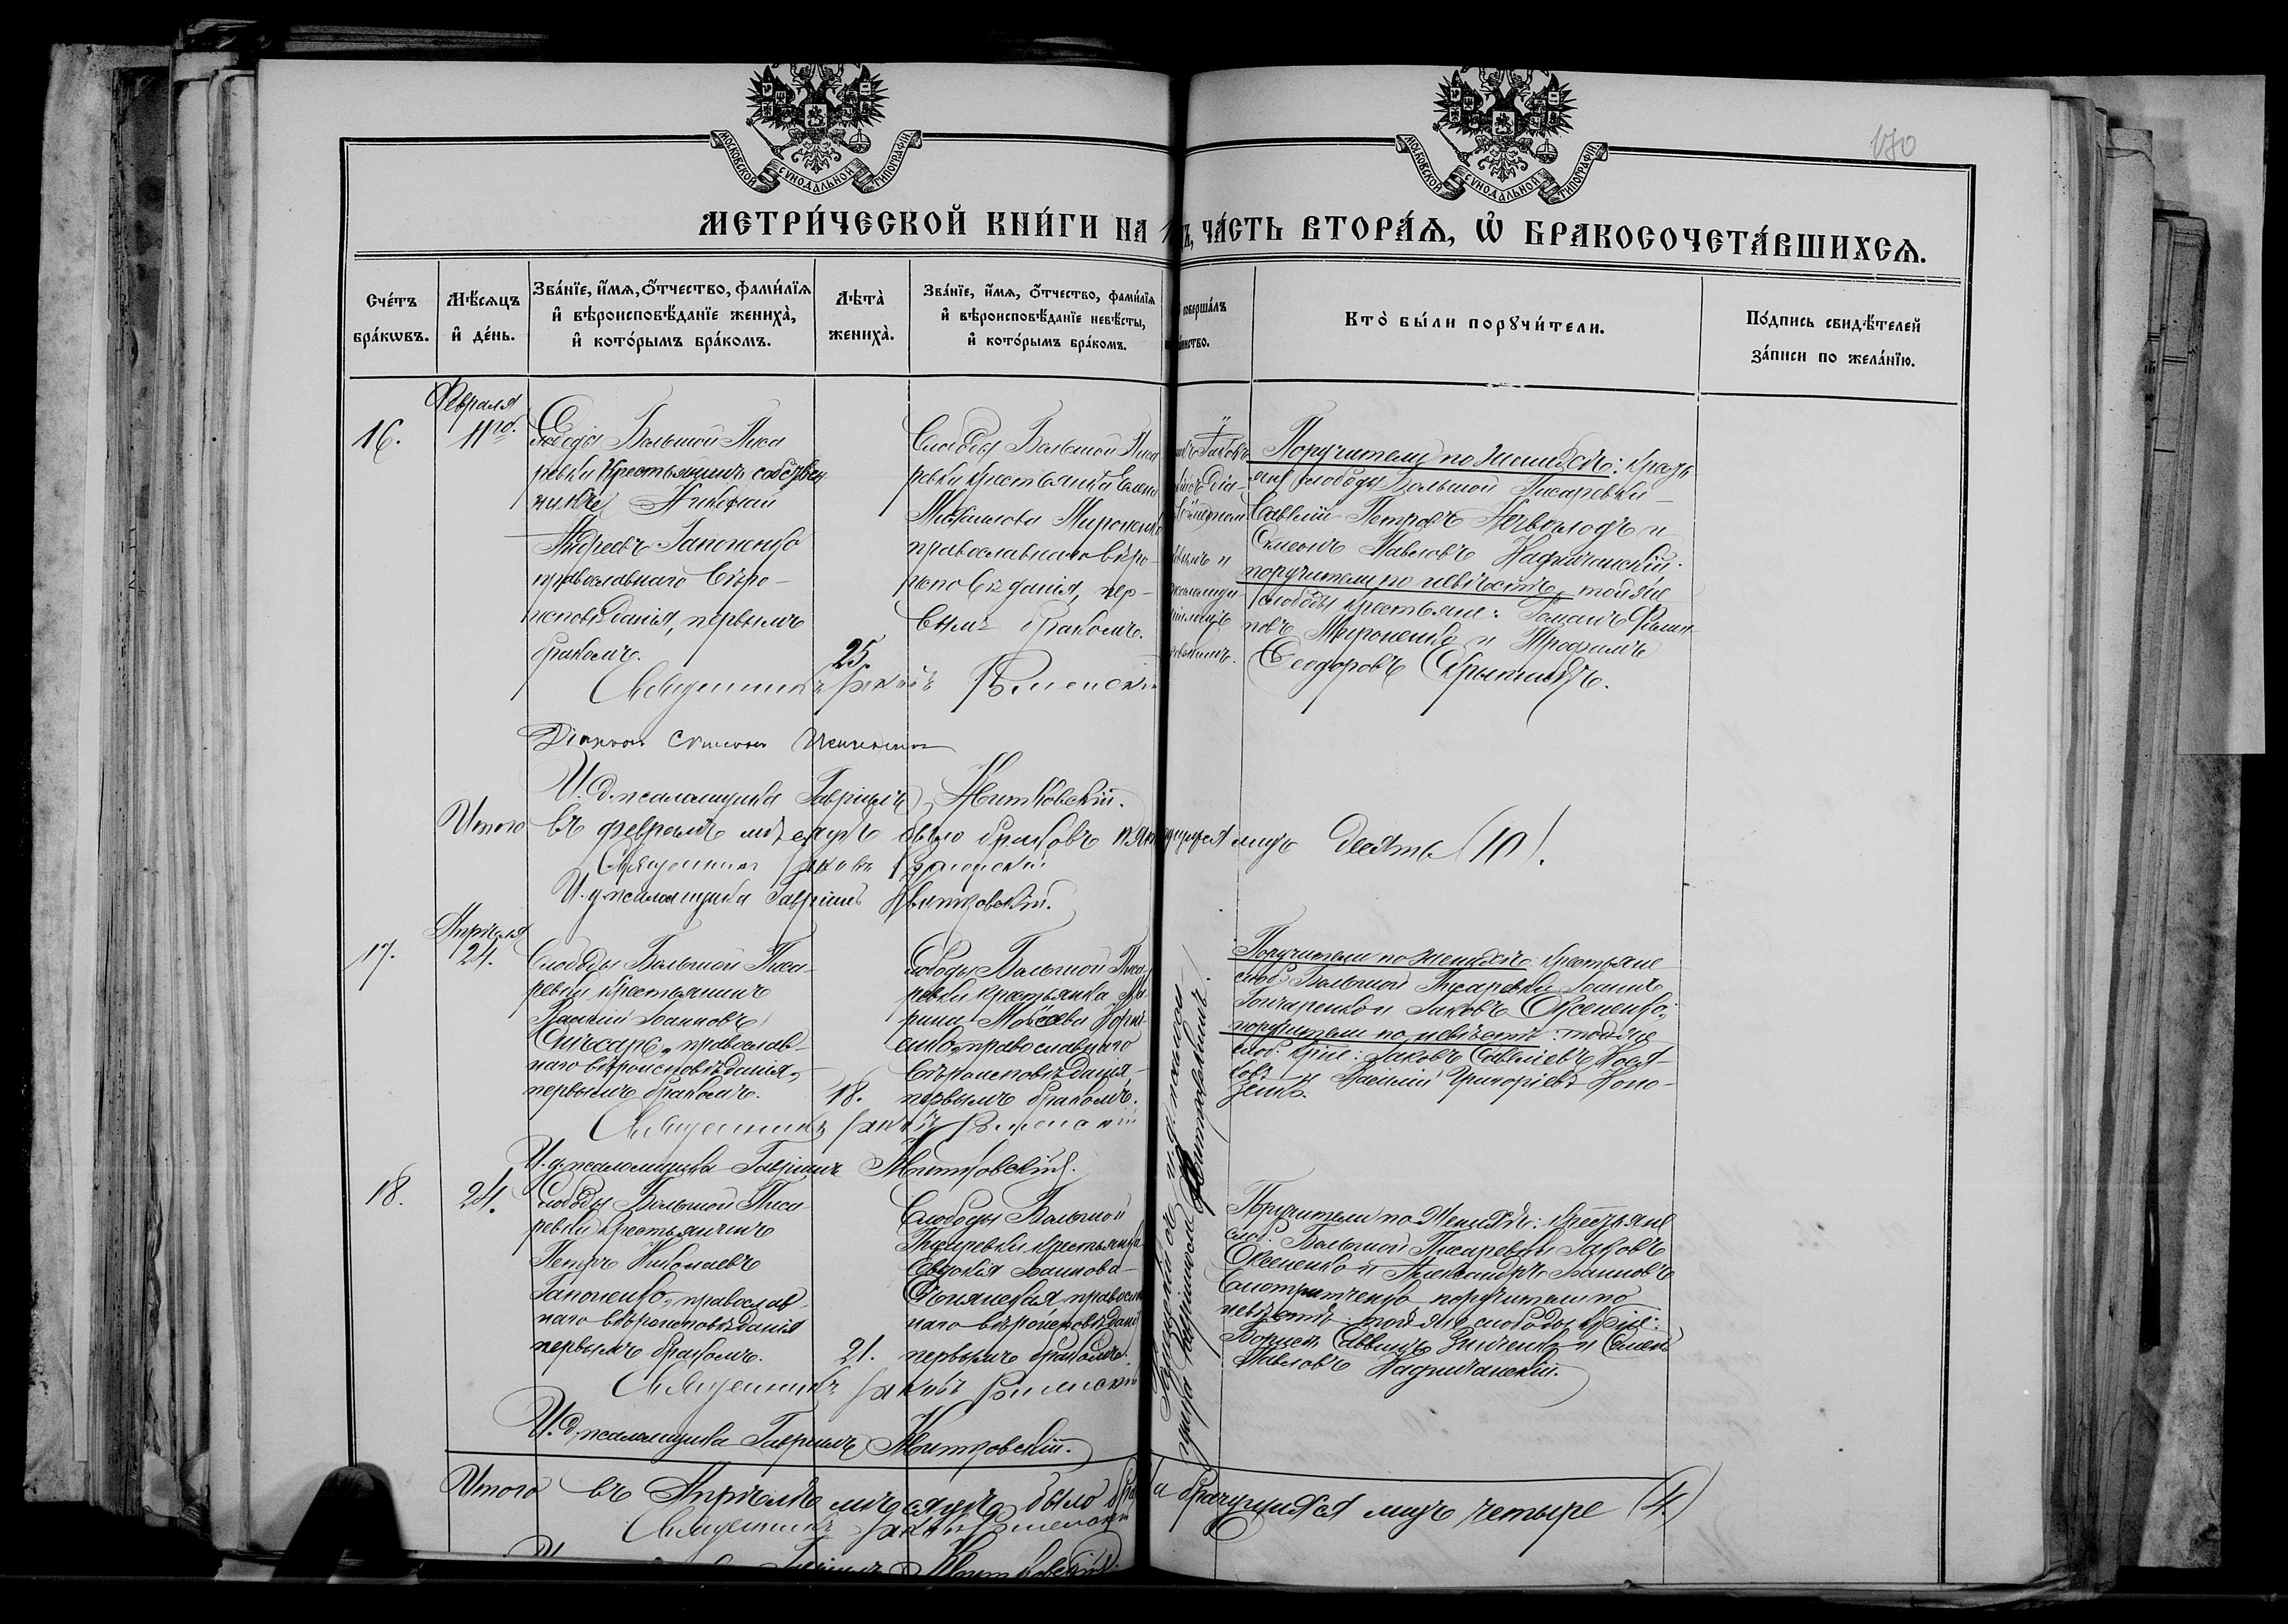 МОСКОВСКОЙ СѴНОДАЛЬНОЙ ТИПОГРАФІИ
МОСКОВСКОЙ СѴНОДАЛЬНОЙ ТИПОГРАФІИ
170
МЕТРИ́ЧЕСКОЙ КНИ́ГИ НА 1
Ъ, ЧА́СТЬ ВТОРА́Ѧ, Ѡ҆ БРАКОСОЧЕТА́ВШИХСѦ.
Сче́тъ
бра́кѡвъ.
Мѣ́сѧцъ
и҆ де́нь.
Зва́нїе, и҆́мѧ, ѻ҆́тчество, фами́лїѧ
и҆ вѣроисповѣ́данїе жениха̀,
и҆ кото́рымъ бра́комъ.
Лѣ́та̀
жениха̀.
Зва́нїе, и҆́мѧ, ѻ҆́тчество, фами́лїѧ
и҆ вѣроисповѣ́данїе невѣ́сты,
и҆ кото́рымъ бра́комъ.
соверша́лъ
таинство.
Кто̀ бы́ли порꙋчи́тели.
По́дпись свидѣ́телей
за́писи по жела́нїю.
Февраля
16.
11го.
Слободы Большой Писа
ревки Крестьянинъ собствен
никъ Никифай
Андреевъ Гапоненко
православнаго вѣро-
исповѣданія, первымъ
бракомъ.
25.
Слободы Большой Писа
ревки крестьянка Елена
Михаилова Мироненко
православнаго вѣро-
исповѣданія, пер-
вымъ бракомъ.
Поручители по женихѣ: крестья
не слободы Большой Писаревки
Савелій Петровъ и
Симеонъ Павловъ Надточанскій.
поручители по невѣстѣ, той же
слободы крестьяне: Романъ Филип
повъ Мироненко и Трофимъ
Феодоровъ
Священникъ Іаковъ
Діаконъ Симеонъ
И. д. псаломщика Гавріилъ Квитковскій.
Итого въ февралѣ мѣсяцѣ было браковъ пять
щихся лицъ десять (10).
Священникъ Іаковъ
И. д. псаломщика Гавріилъ Квитковскій.
Апрѣля
17.
24.
Слободы Большой Писа-
ревки крестьянинъ
Василій Іоанновъ
Слюсарь, православ-
наго вѣроисповѣданія,
первымъ бракомъ.
18.
Слободы Большой Писа
ревки крестьянка Ма
рина Моѵсеева
православнаго
вѣроисповѣданія,
первымъ бракомъ.
Поручители по женихѣ: крестьяне
слоб. Большой Писаревки Іоаннъ
Гончаренко и Іаковъ Овсеенко;
поручители по невѣстѣ: той же
слоб. кр-не: Іаковъ Савельевъ
и Василій Григорьевъ
Священникъ Іаковъ
И. д. псаломщика Гавріилъ Квитковскій.
18.
24.
Слободы Большой Писа
ревки крестьянинъ
Петръ Николаевъ
Гапоненко, православ
наго вѣроисповѣданія
первымъ бракомъ.
21.
Слободы Большой
Писаревки крестьянка
Евдокія Іаннова
православ
наго вѣроисповѣданія
первымъ бракомъ.
Поручители по женихѣ: крестьяне
слоб. Большой Писаревки Іаковъ
Овсеенко и Александръ Іанновъ
поручители по
невѣстѣ той же слободы кр-не:
Борисъ Саввинъ и Симеонъ
Павловъ Надточанскій.
Священникъ Іаковъ
И. д. псаломщика Гавріилъ Квитковскій.
Итого въ Апрѣлѣ мѣсяцѣ было
брачущихся лицъ четыре (4.)
Священникъ Іаковъ
Гавріилъ Квитковскій.